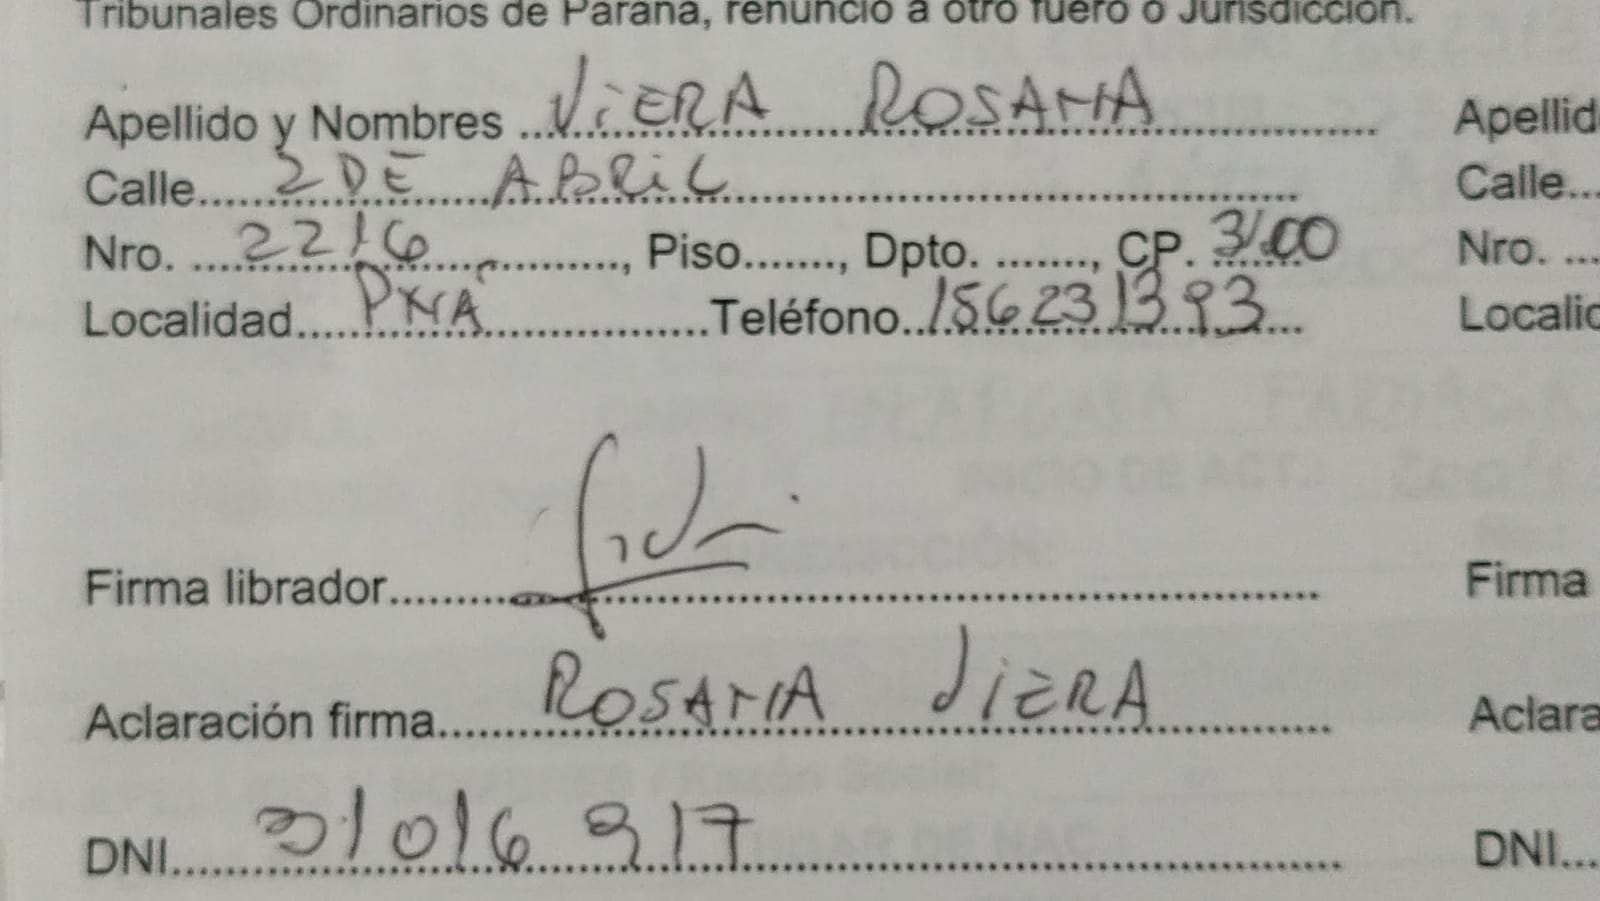 Tribunales Ordinarios de Paraná, renuncio a otro fuero o Jurisdicción.
Apellido y Nombres ... VIERA ROSANA ... Apellid
Calle... 2 DE ABRIL ... Calle...
Nro. ... 2216 ..., Piso......., Dpto. ......., CP. 3100 Nro. ...
Localidad... PNA ... Teléfono... 156231393 ... Localid
Firma librador... Firma
Aclaración firma... ROSANA VIERA ... Aclara
DNI... 31016917 ... DNI...